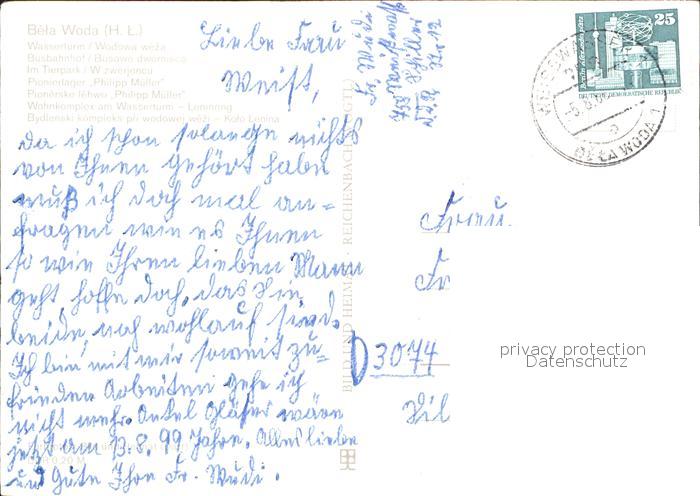 Běła Woda (H. Ł.)
Wasserturm / Wodowa wěža
Busbahnhof / Busowe dwórnišćo
Im Tierpark / W zwěrjencu
Pionierlager „Philipp Müller“
Pioněrske lěhwo „Philipp Müller“
Wohnkomplex am Wasserturm – Leninring
Bydlenski kompleks při wodowej wěži – Koło Lenina
Liebe Frau
Weist,
da ich schon solange nichts
von Ihnen gehört habe
muß ich doch mal an=
fragen wie es Ihnen
so wie Ihren lieben Mann
geht, hoffe doch, das Sie
beide, noch wohlauf sind.
Ich bin mit mir soweit zu=
frieden Arbeiten gehe ich
nicht mehr. Onkel Gläser wäre
jetzt am 13.8. 99 Jahre. Alles liebe
und Gute Ihre Fr. Mudi.
BILD UND HEIMAT REICHENBACH (VOGTL)
25
DEUTSCHE DEMOKRATISCHE REPUBLIK
BĚŁA WODA 1
Frau
Fr
D 3074
privacy protection
Datenschutz